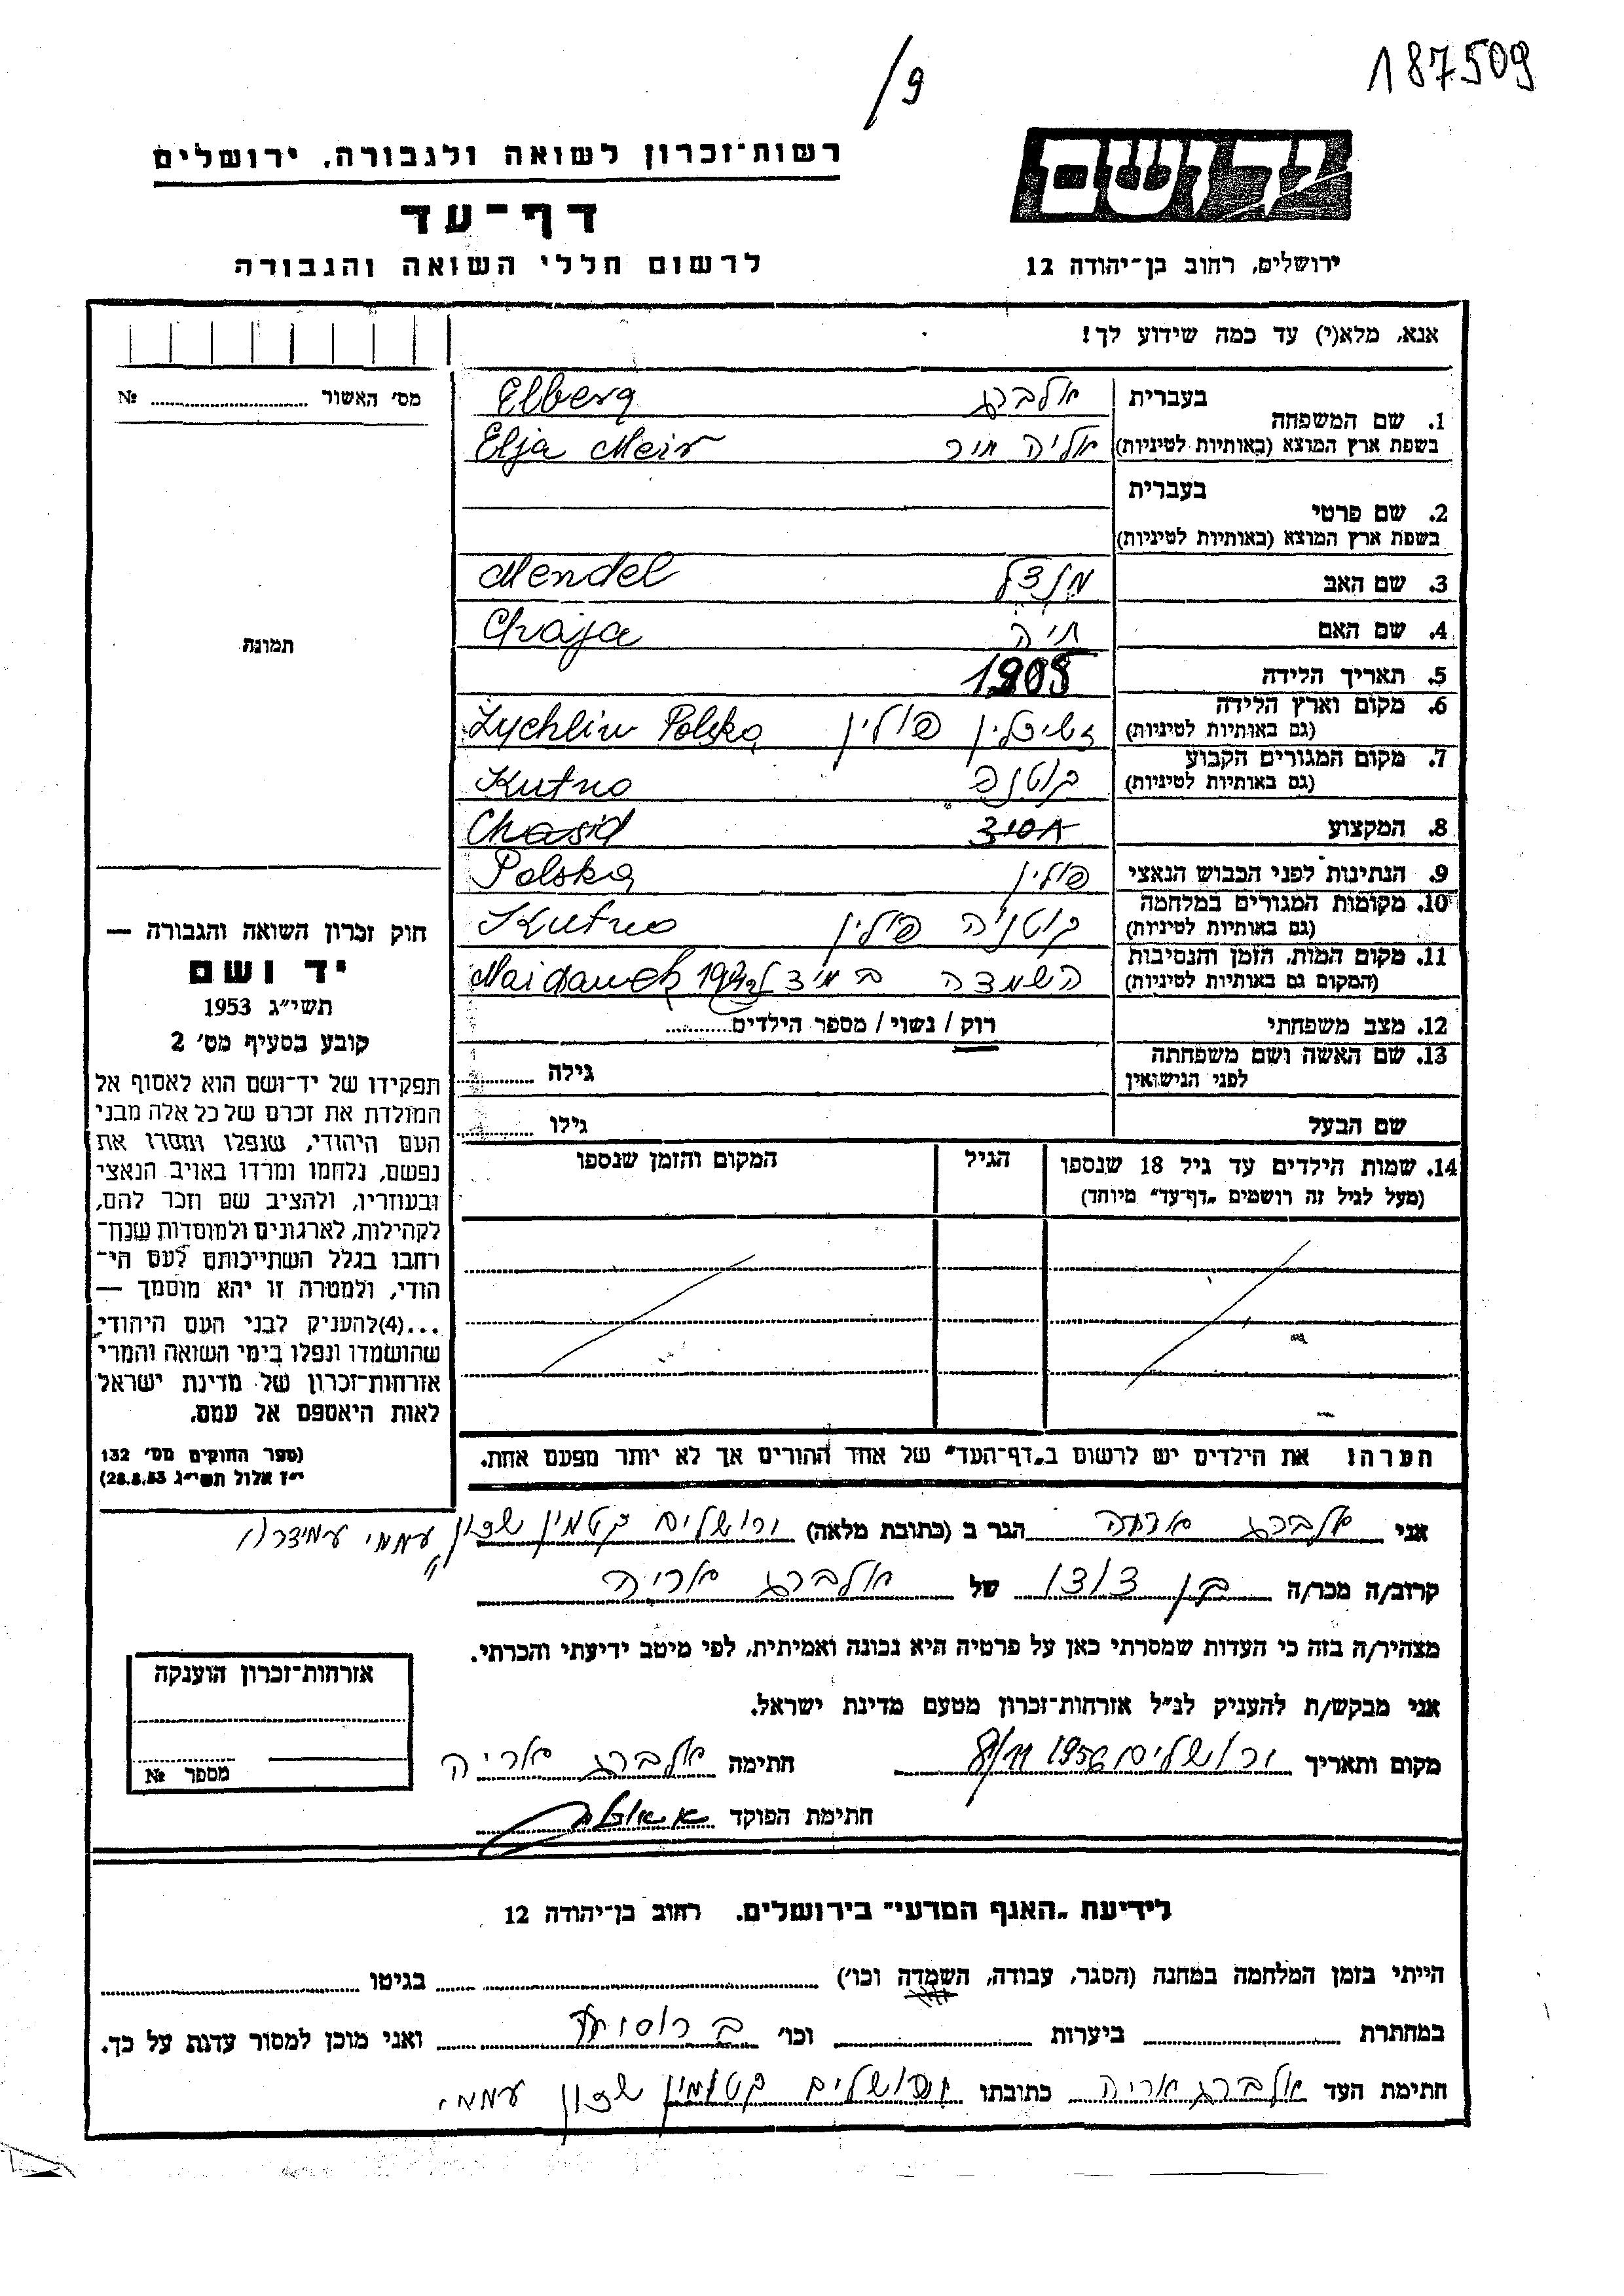 187509
/9
יד ושם
רשות־זכרון לשואה ולגבורה, ירושלים
דף־עד
ירושלים, רחוב בן־יהודה 12
לרשום חללי השואה והגבורה
אנא, מלא(י) עד כמה שידוע לך!
מס׳ האשור № ........
1. שם המשפחה
בעברית
אלברג Elberg
בשפת ארץ המוצא (באותיות לטיניות)
אליה מיר Elja Meir
2. שם פרטי
בעברית
בשפת ארץ המוצא (באותיות לטיניות)
3. שם האב מנדל Mendel
4. שם האם חיה Chaja
תמונה
5. תאריך הלידה 1905
6. מקום וארץ הלידה
(גם באותיות לטיניות)
זשיכלין פולין Zychlin Polska
7. מקום המגורים הקבוע
(גם באותיות לטיניות)
Kutno
8. המקצוע Chasid
9. הנתינות לפני הכבוש הנאצי פולין Polska
10. מקומות המגורים במלחמה
(גם באותיות לטיניות)
קוטנה פולין Kutno
11. מקום המות, הזמן והנסיבות
(המקום גם באותיות לטיניות)
השמדה Maidanek 1942
12. מצב משפחתי רוק / נשוי / מספר הילדים........
13. שם האשה ושם משפחתה
לפני הנישואין
גילה ........
שם הבעל גילו ........
14. שמות הילדים עד גיל 18 שנספו
(מעל לגיל זה רושמים „דף־עד״ מיוחד)
הגיל
המקום והזמן שנספו
הערה: את הילדים יש לרשום ב„דף־העד״ של אחד ההורים אך לא יותר מפעם אחת.
חוק זכרון השואה והגבורה —
יד ושם
תשי״ג 1953
קובע בסעיף מס׳ 2
תפקידו של יד־ושם הוא לאסוף אל
המולדת את זכרם של כל אלה מבני
העם היהודי, שנפלו ומסרו את
נפשם, נלחמו ומרדו באויב הנאצי
ובעוזריו, ולהציב שם וזכר להם,
לקהילות, לארגונים ולמוסדות שנח־
רחבו בגלל השתייכותם לעם הי־
הודי, ולמטרה זו יהא מוסמך —
...(4)להעניק לבני העם היהודי
שהושמדו ונפלו בימי השואה והמרי
אזרחות־זכרון של מדינת ישראל
לאות היאספם אל עמם.
(ספר החוקים מס׳ 132
י״ז אלול תשי״ג 28.8.53)
אני אלברג אריה הגר ב (כתובת מלאה) ירושלים קטמון שכון עממי
קרוב/ה מכר/ה בן דודו של אלברג אריה
מצהיר/ה בזה כי העדות שמסרתי כאן על פרטיה היא נכונה ואמיתית, לפי מיטב ידיעתי והכרתי.
אני מבקש/ת להעניק לנ״ל אזרחות־זכרון מטעם מדינת ישראל.
מקום ותאריך ירושלים 8/11 1956 חתימה אלברג אריה
חתימת הפוקד
אזרחות־זכרון הוענקה
מספר №
לידיעת „האגף המדעי״ בירושלים. רחוב בן־יהודה 12
הייתי בזמן המלחמה במחנה (הסגר, עבודה, השמדה וכו׳) ........ בגיטו ........
במחתרת ........ ביערות ........ וכו׳ ברוסיה ואני מוכן למסור עדות על כך.
חתימת העד אלברג אריה כתובתו ירושלים קטמון שכון עממי